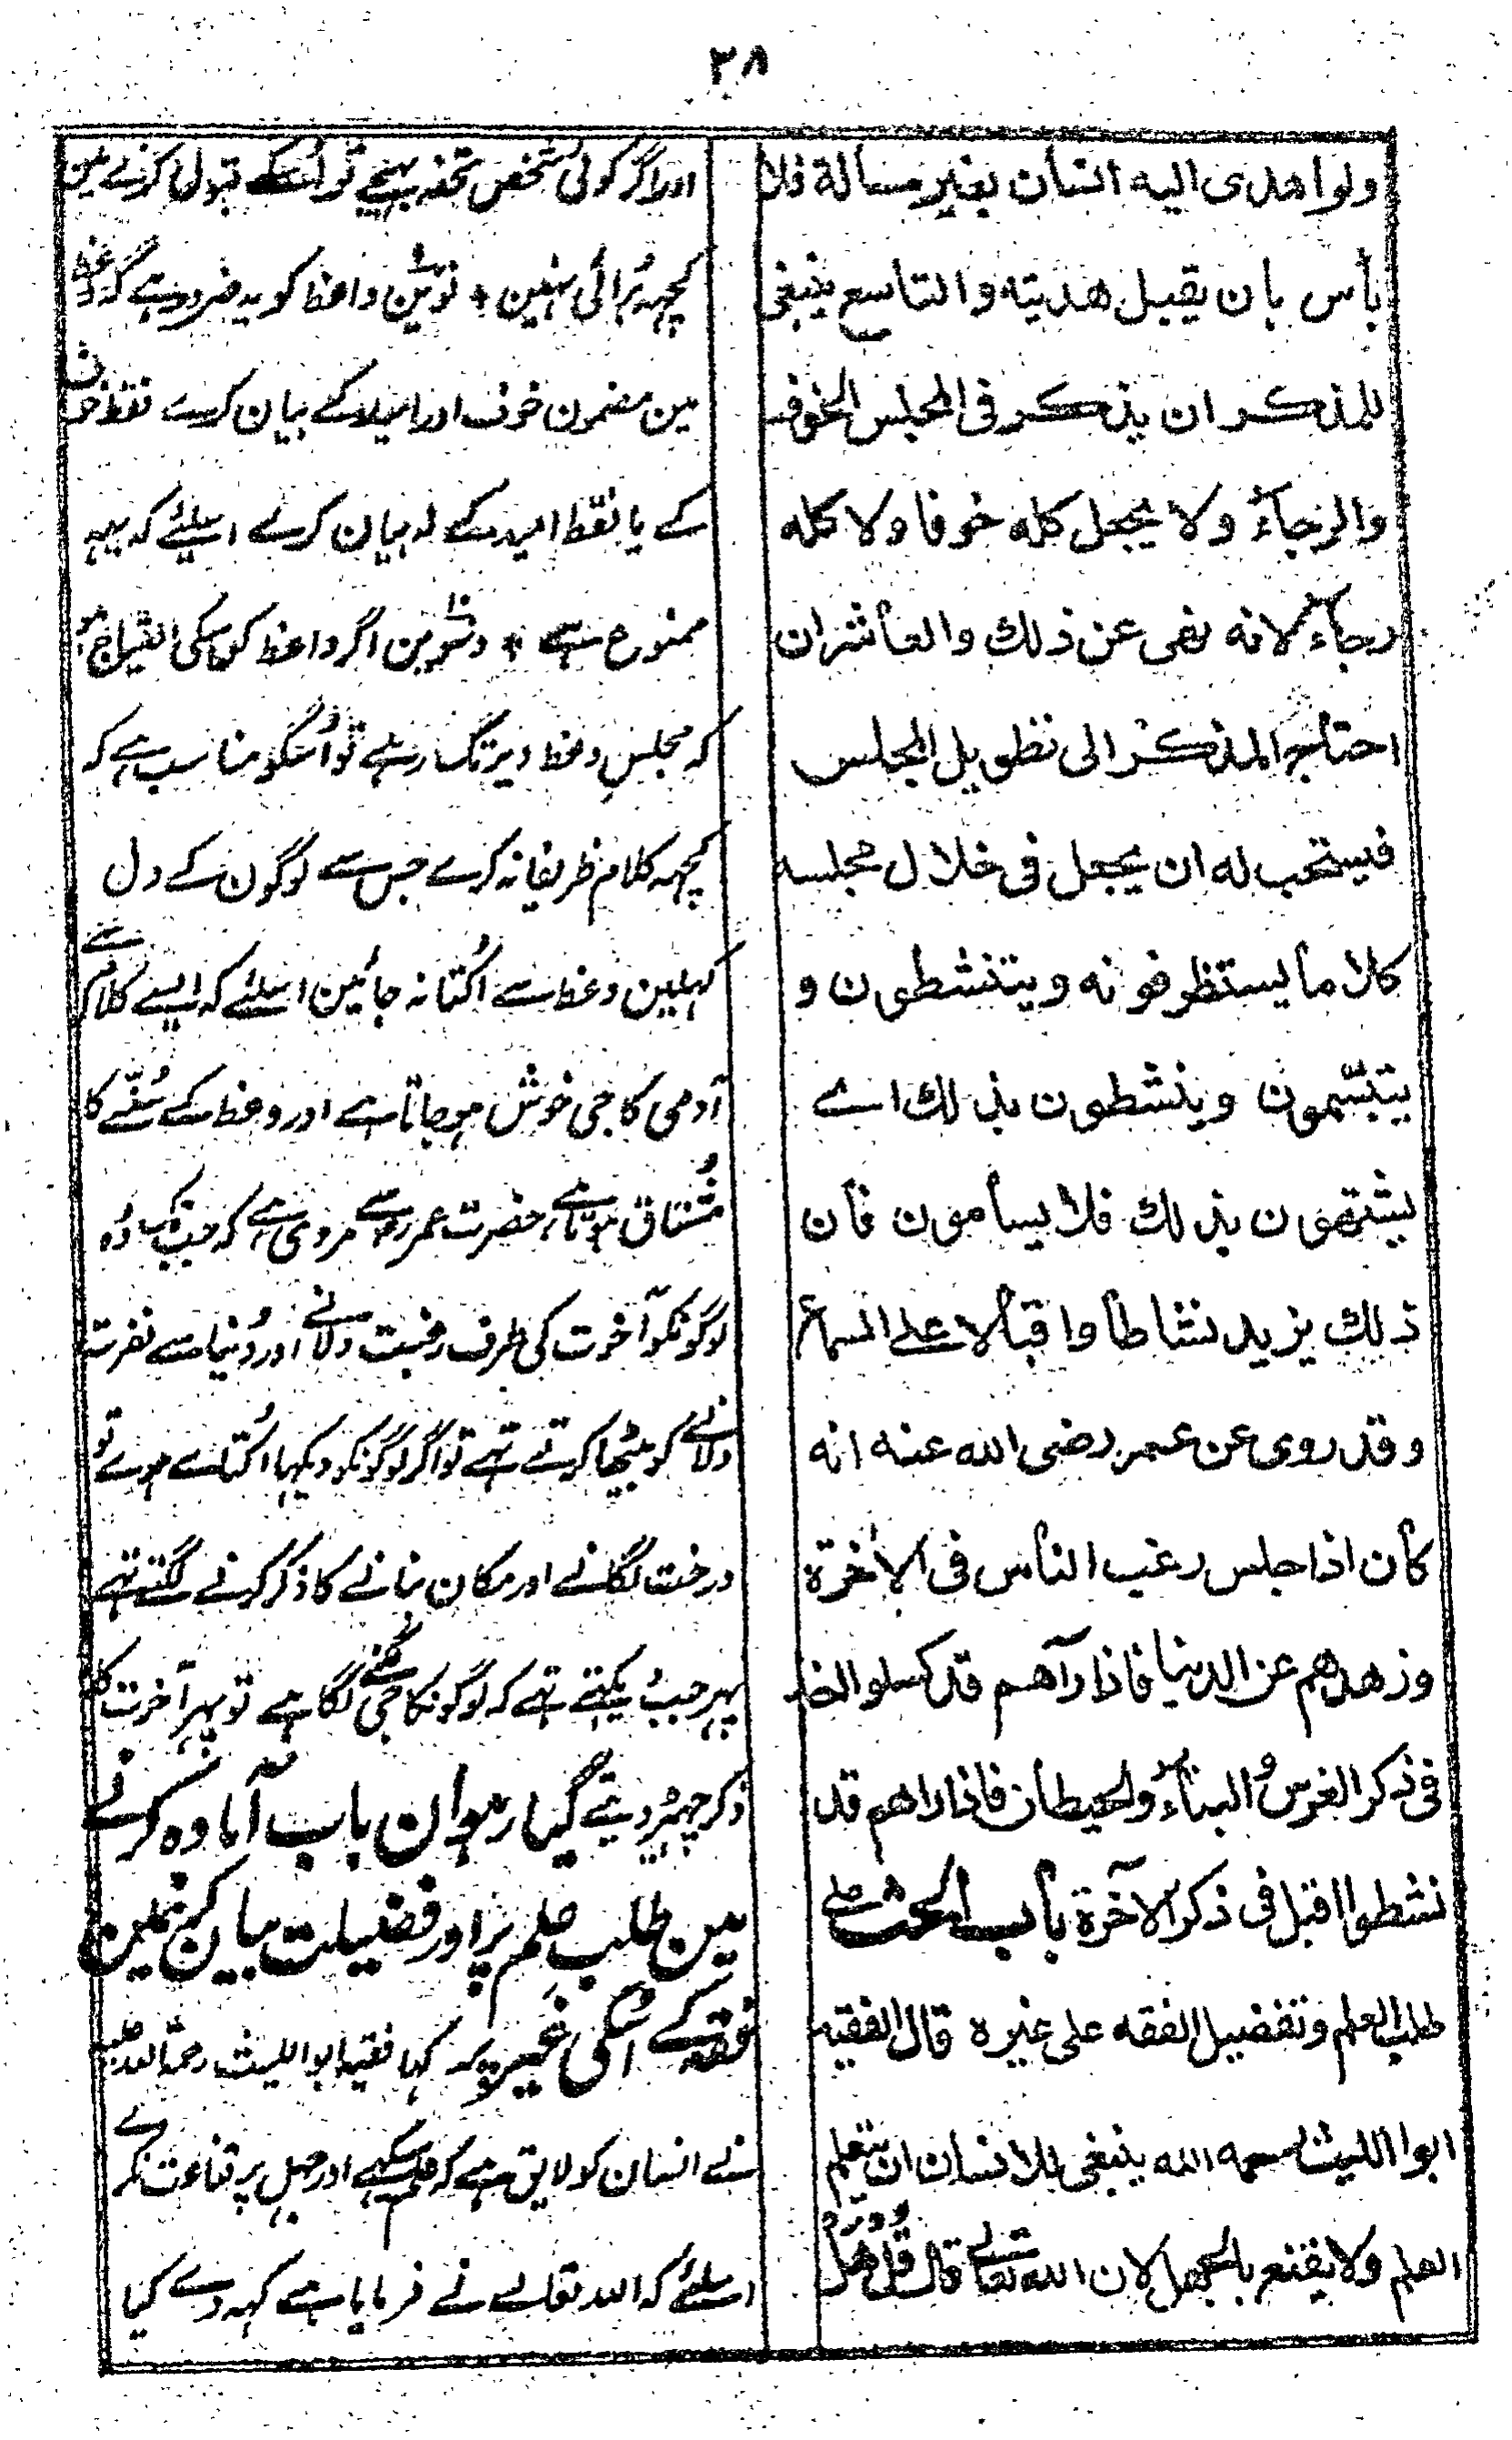 ٣٨
ولواهدى اليه انسان بغير مسألة فلا
بأس بان يقبل هديته والتاسع ينبغى
للمذكر ان يذكر فى المجلس الخوف
والرجاء ولا يجعل كله خوفا ولا كله
رجاء لانه نهى عن ذلك والعاشر ان
احتاج المذكر الى تطويل المجلس
فيستحب له ان يجعل فى خلال مجلسه
كلاما يستظرفونه ويتنشطون و
يتبسمون وينشطون بذلك اے
يشتهون بذلك فلا يسأمون فان
ذلك يزيد نشاطا واقبالا على السماع
وقد روى عن عمر رضى الله عنه انه
كان اذا جلس رغب الناس فى الاخرة
وزهدهم عن الدنيا فاذا رآهم قد كسلوا اخذ
فى ذكر الغرس والبناء والحيطان فاذا راهم قد
نشطوا اقبل فى ذكر الآخرة باب الحث على
طلب العلم وتفضيل الفقه على غيره قال الفقيه
ابوالليث رحمه الله ينبغى للانسان ان يتعلم
العلم ولا يقنع بالجهل لان الله تعالى قال قل هل
اور اگر کوئی شخص تحفہ بہیجے تو اُسکے قبول کرنے مین
کچہہ بُرائی نہین + نوئین واعظ کو یہ ضرور ہے کہ وعظ
مین مضمون خوف اور امید کے بیان کرے فقط خوف
کے یا فقط امید کے نہ بیان کرے اسلئے کہ یہہ
ممنوع ہے + دسوین اگر واعظ کو اسکی احتیاج ہو
کہ مجلس وعظ دیر تک رہے تو اُسکو مناسب ہے کہ
کچہہ کلام ظریفانہ کرے جس سے لوگون کے دل
کہلین وعظ سے اُکتا نہ جائین اسلئے کہ ایسے کلام سے
آدمی کا جی خوش ہوجاتا ہے اور وعظ کے سُننے کا
مُشتاق ہوتا ہے حضرت عمر رض سے مروی ہے کہ جب وُہ
لوگونکو آخرت کی طرف رغبت دلانے اور دُنیا سے نفرت
دلانے کو بیٹھا کرتے تہے تو اگر لوگونکو دیکہا اُکتاے ہوے تو
درخت لگانے اور مکان بنانے کا ذکر کرنے لگتے تہے
پہر جب دیکہتے تہے کہ لوگونکا جی لگا ہے تو پہر آخرت کا
ذکر چہیڑ دیتے گیارہوان باب آمادہ کرنے
مین طلب علم پر اور فضیلت بیان کرنیمین
فقہ کے اُسکی غیر پر کہا فقیہ ابواللیث رحمۃ اللہ علیہ
نے انسان کو لایق ہے کہ علم سیکہے اور جہل پر قناعت نکرے
اسلئے کہ اللہ تعالے نے فرمایا ہے کہہ دے کیا